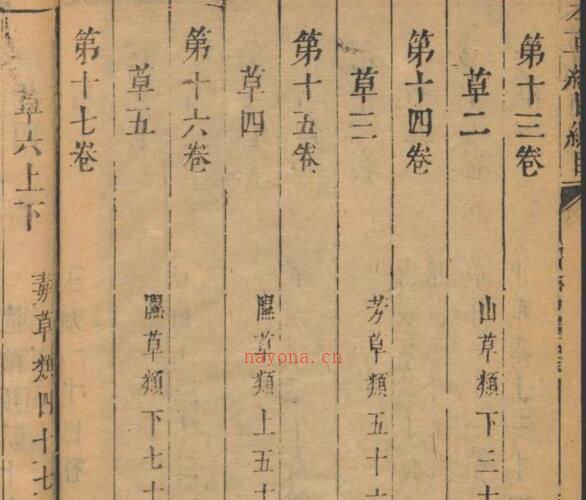 第十三卷
草二 山草類下三十
第十四卷
草三 芳草類五十六
第十五卷
草四 隰草類上五十
第十六卷
草五 隰草類下七十
第十七卷
草六上下 毒草類四十七
nayona.cn